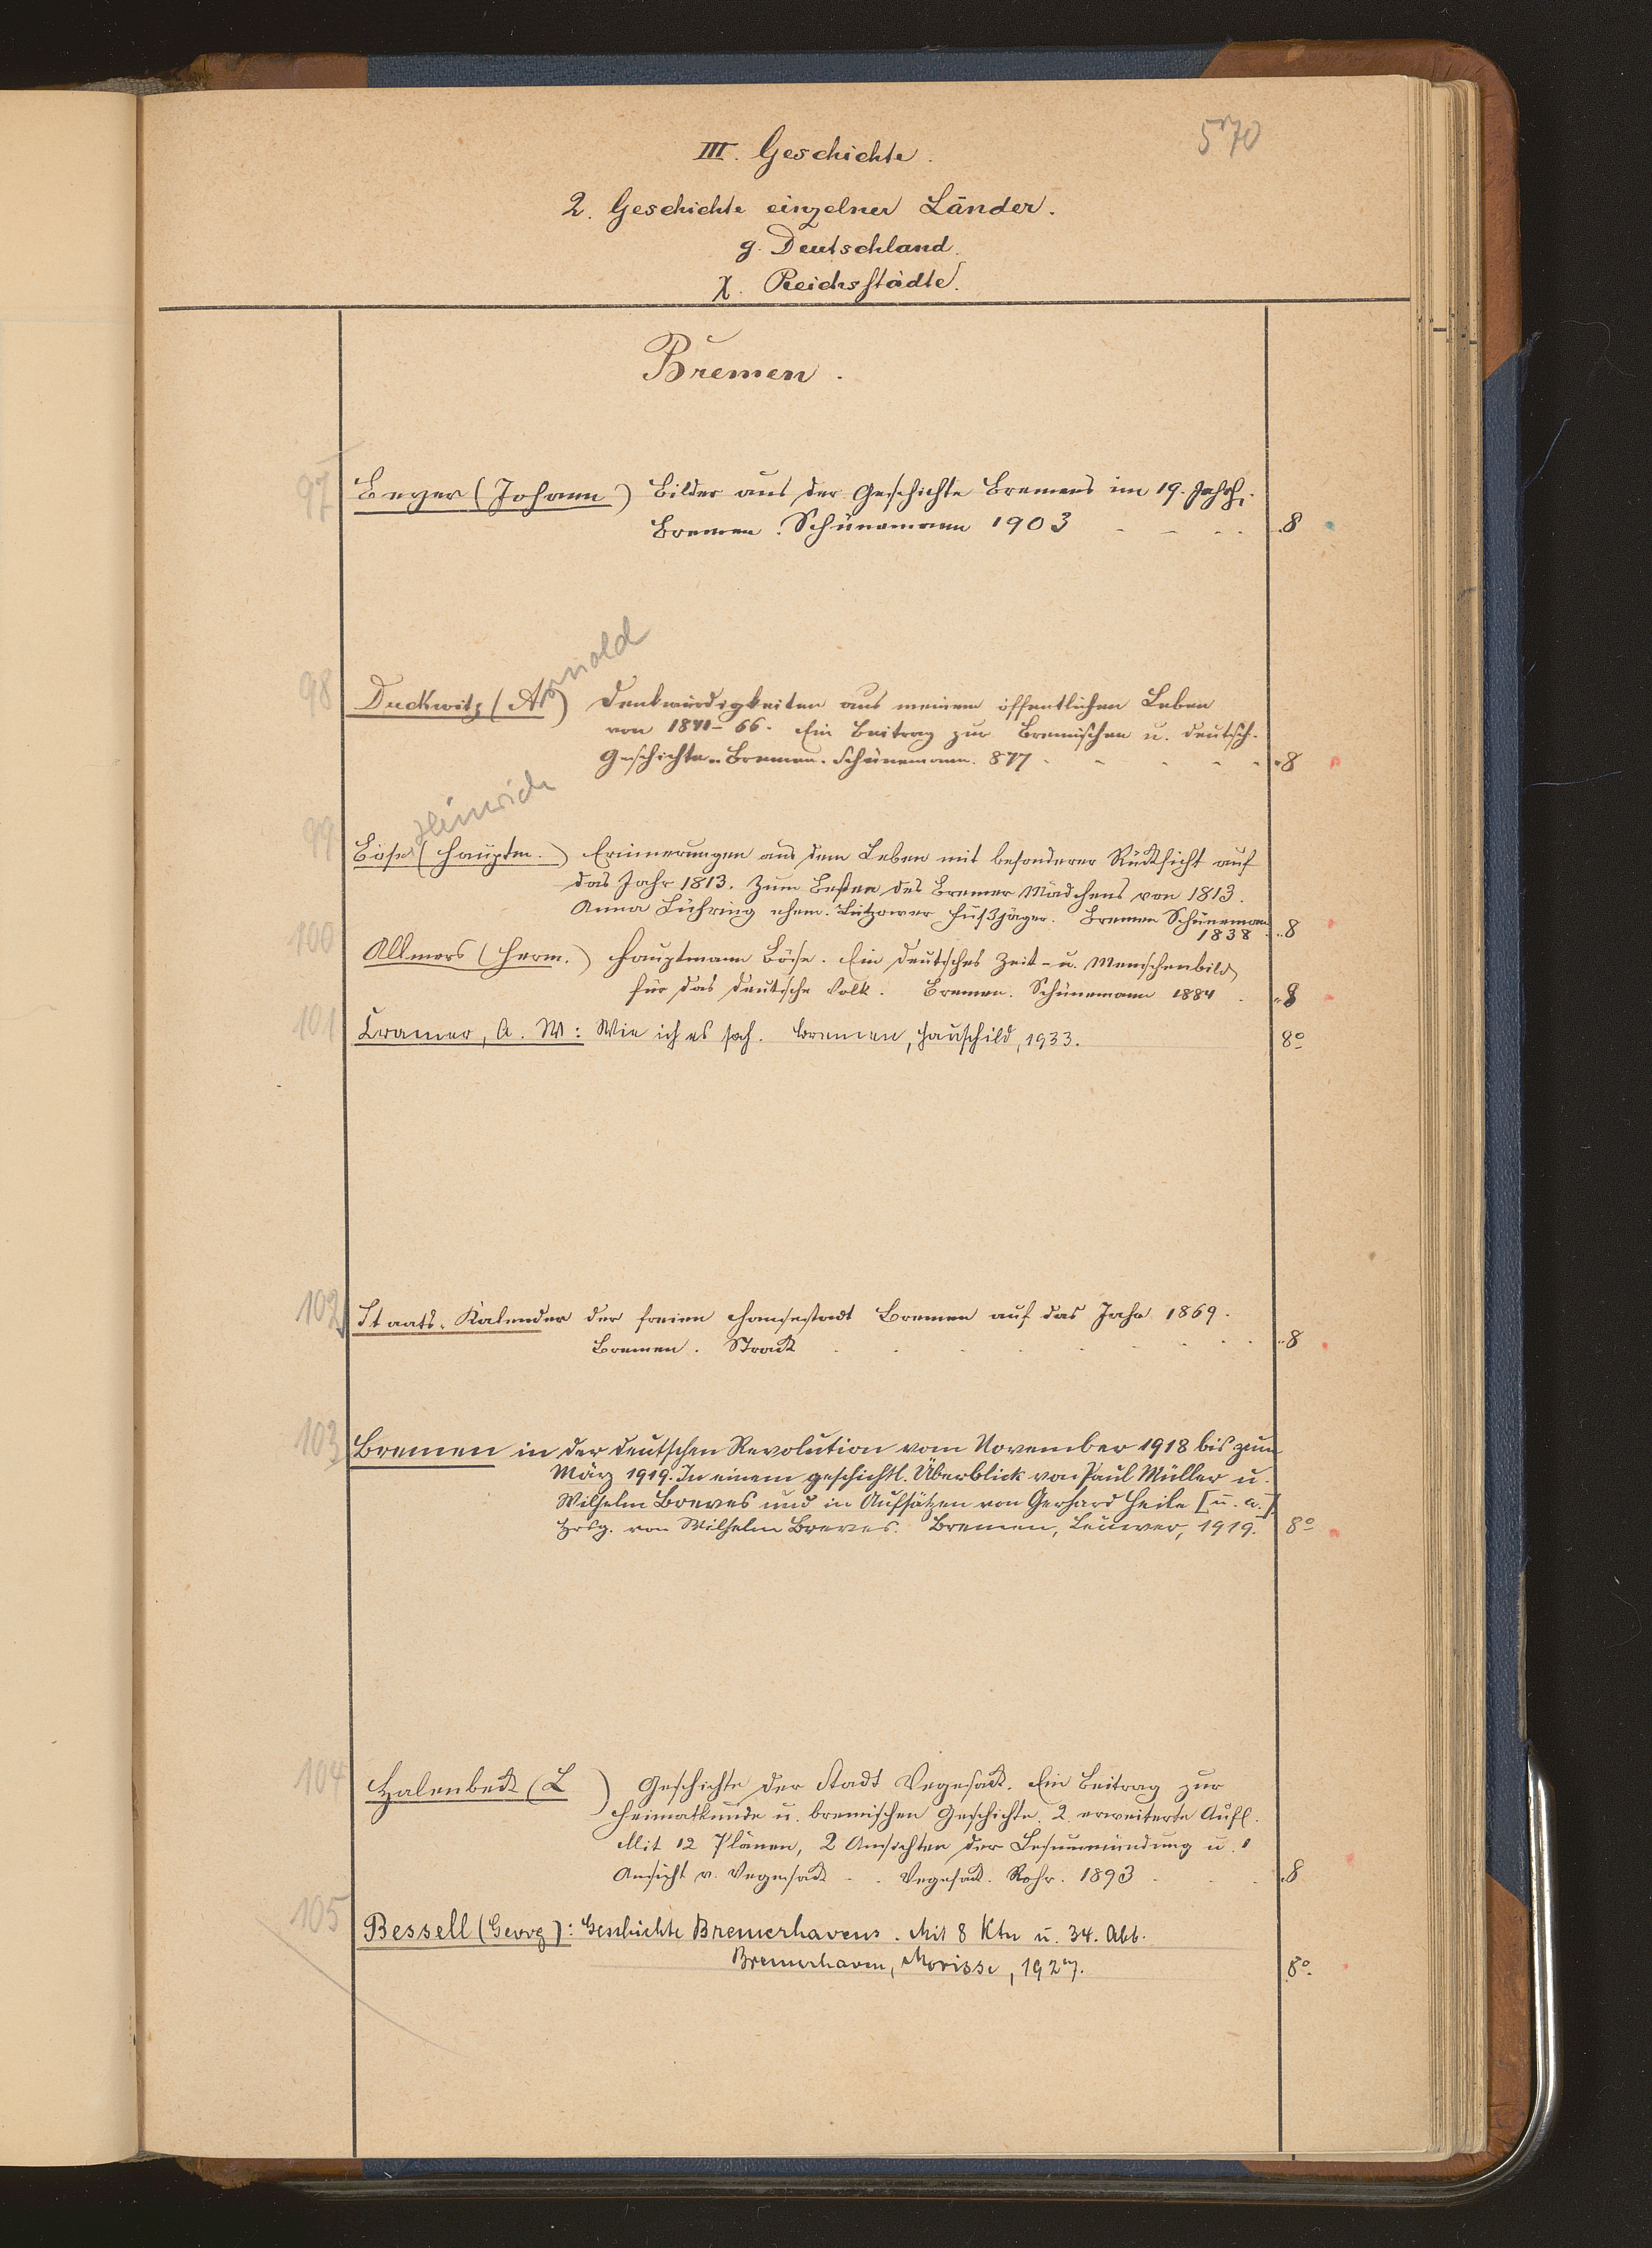 570
III. Geschichte.
2. Geschichte einzelner Länder.
g. Deutschland.
χ. Reichsstädte.
Bremen.
97 Beyer (Johann) Bilder aus der Geschichte Bremens im 19. Jahrh.
Bremen. Schünemann 1903 8
Arnold
98 Duckwitz (A ) Denkwürdigkeiten aus meinem öffentlichen Leben
von 1841-66. Ein Beitrag zur Bremischen u. deutsch.
Geschichte. Bremen. Schünemann. 877 8
Heinrich
99 Böse (Hauptm.) Erinnerungen aus dem Leben mit besonderer Rücksicht auf
das Jahr 1813. Zum Besten des Bremer Mädchens von 1813.
Anna Lühring ehem. Lützower Fußjäger. Bremen Schünemann
1838 8
100 Allmers (Herm.) Hauptmann Böse. Ein deutsches Zeit- u. Menschenbild
für das deutsche Volk. Bremen. Schünemann 1884 8
101 Cramer, A. W: Wie ich es sah. Bremen, Hauschild, 1933. 8°
102 Staats-Kalender der freien Hansestadt Bremen auf das Jahr 1869.
Bremen. Strack 8
103 Bremen in der deutschen Revolution vom November 1918 bis zum
März 1919. In einem geschichtl. Überblick von Paul Müller u.
Wilhelm Breves und in Aufsätzen von Gerhard Heile [u. a.]
Hrsg. von Wilhelm Breves. Bremen, Leuwer, 1919. 8°
104 Halenbeck (L ) Geschichte der Stadt Vegesack. Ein Beitrag zur
Heimatkunde u. bremischen Geschichte. 2. erweiterte Aufl.
Mit 12 Plänen, 2 Ansichten der Lesummündung u. 1
Ansicht v. Vegesack. Vegesack. Rohr. 1893 8
105 Bessell (Georg): Geschichte Bremerhavens. Mit 8 Ktn u. 34. Abb.
Bremerhaven, Morisse, 1927. 8°.